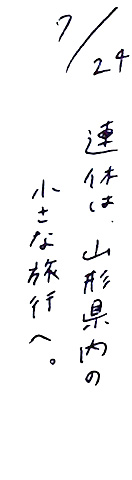 7/24
連休は、山形県内の
小さな旅行へ。